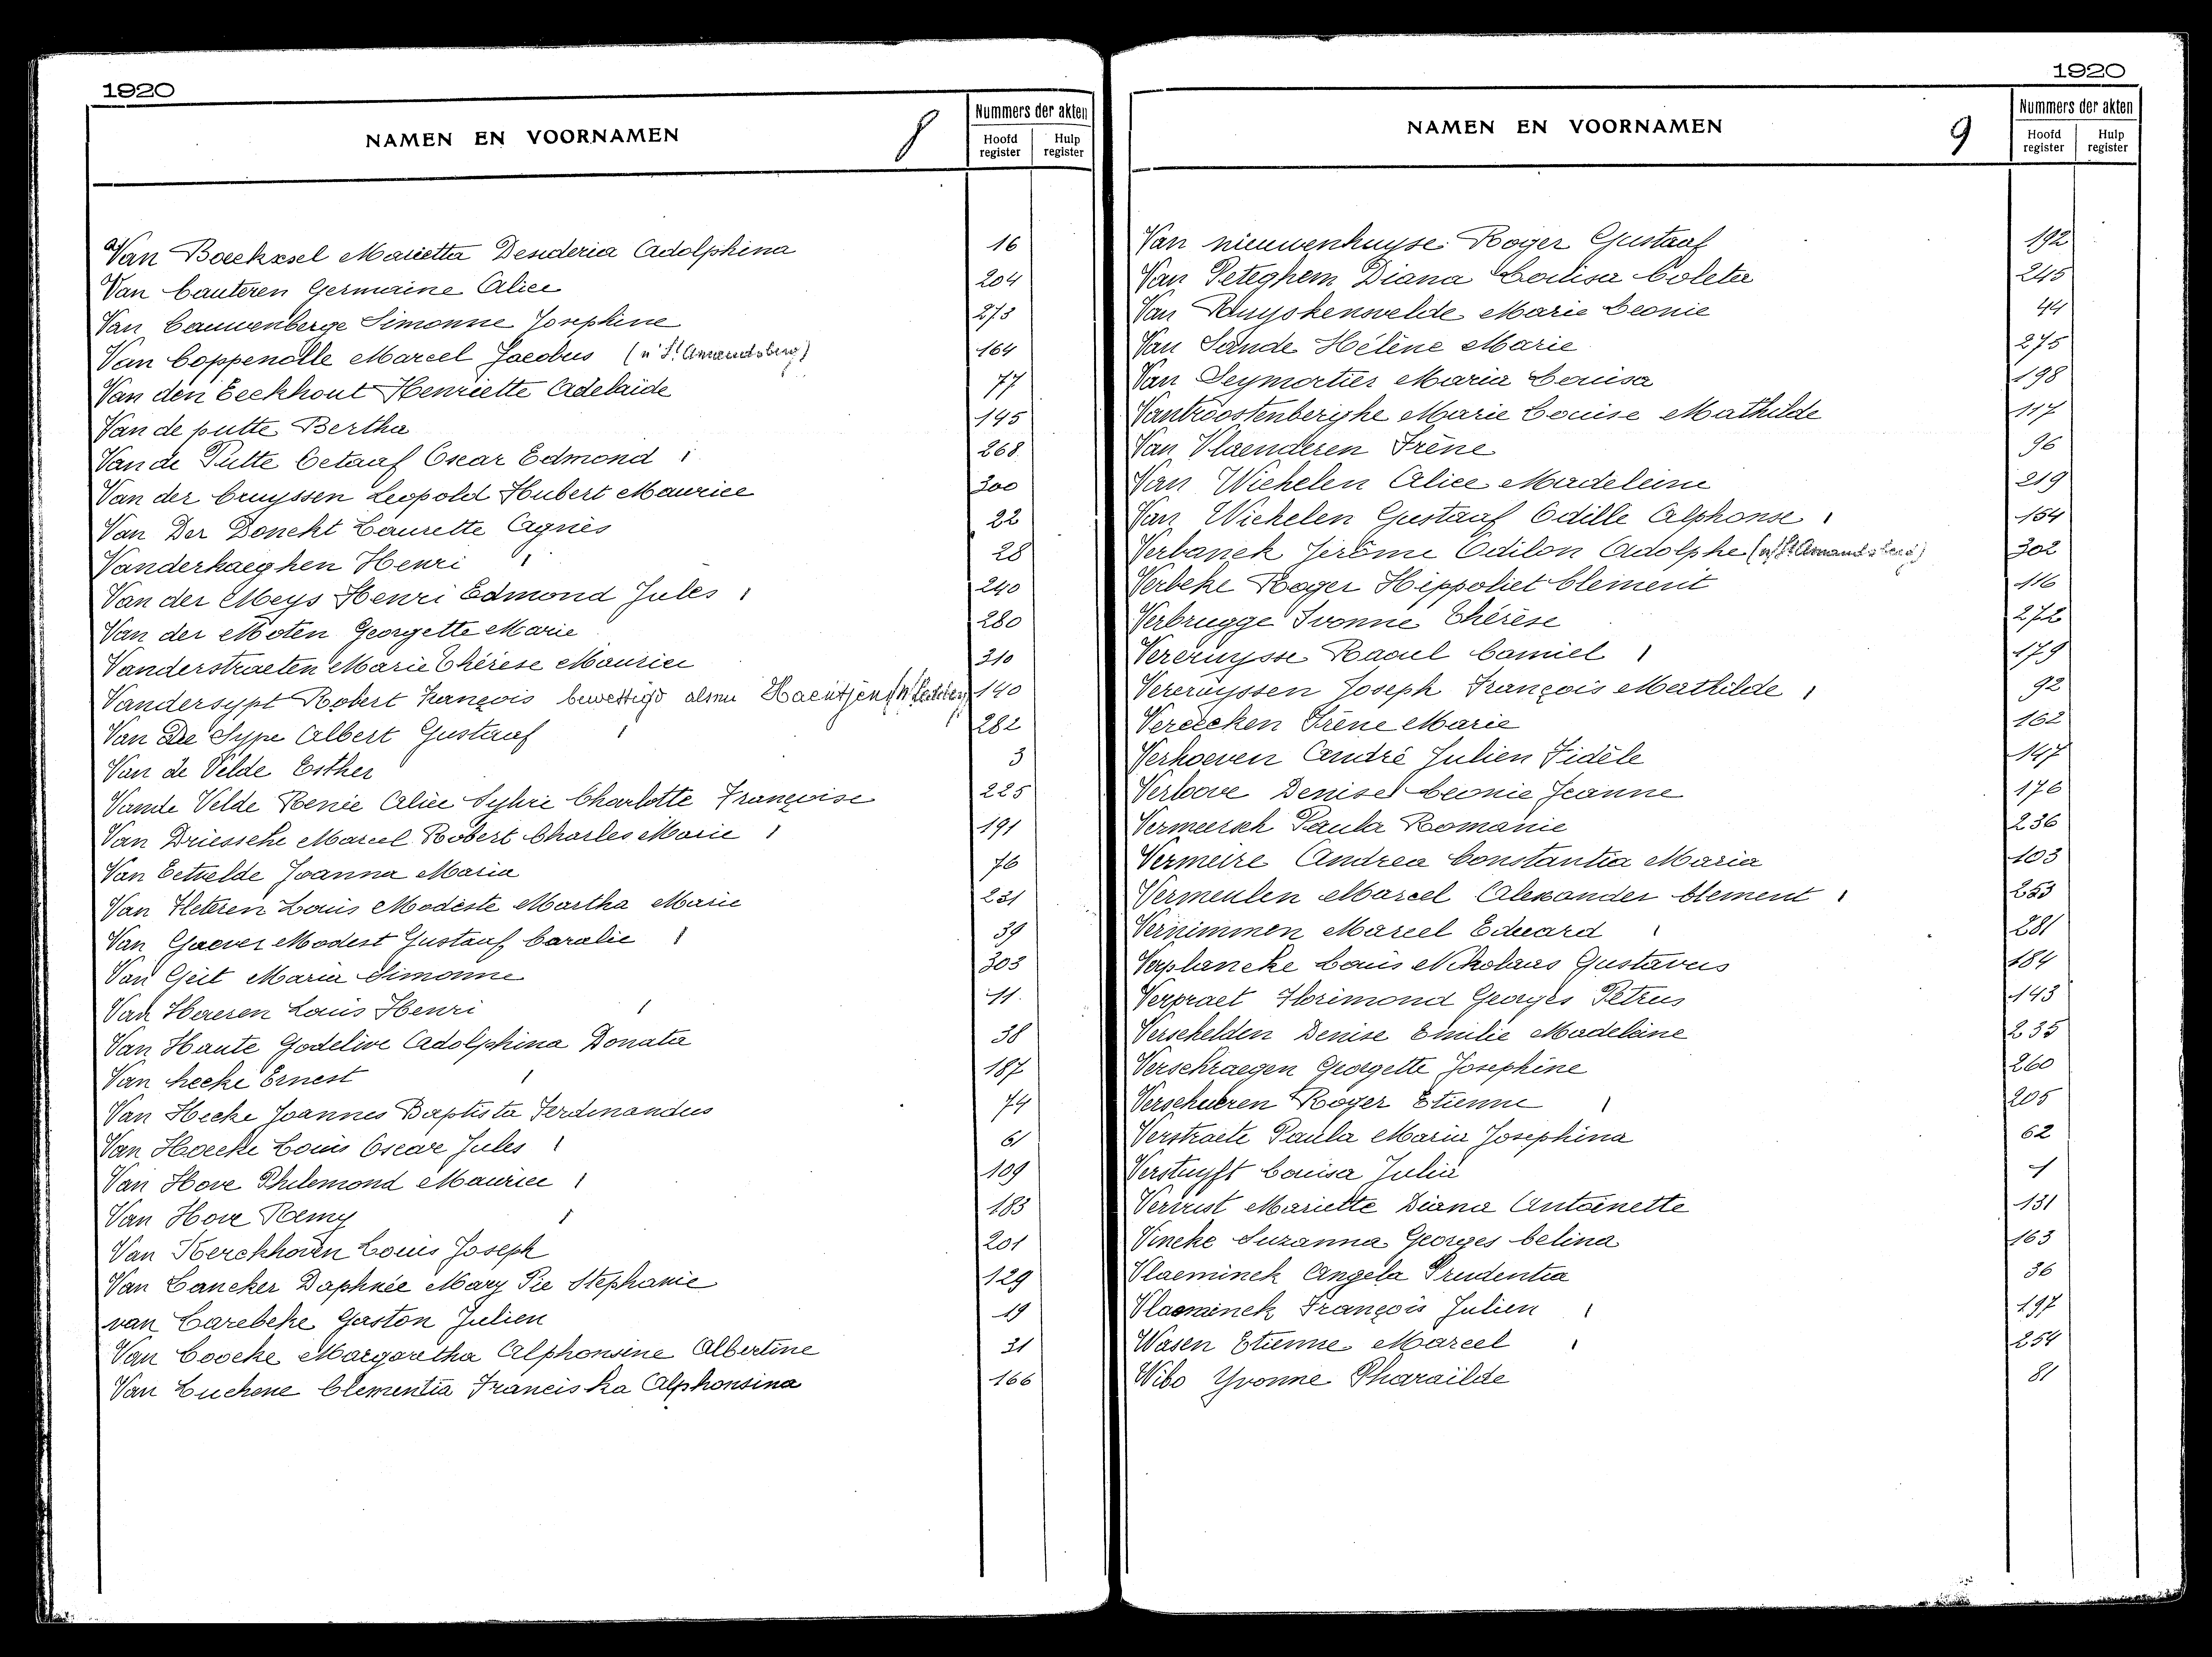 1920
NAMEN EN VOORNAMEN 8
Nummers der akten
Hoofd register Hulp register
Van Boeckxsel Marietta Desideria Adolphina 16
Van Cauteren Germaine Alice 204
Van Cauwenberge Simonne Josephine 273
Van Coppenolle Marcel Jacobus (n' St Amandsberg) 164
Van den Eeckhout Henriette Adelaïde 77
Van de putte Bertha 145
Van de Putte Octaaf Oscar Edmond 268
Van der Cruyssen Leopold Hubert Maurice 300
Van Der Donckt Laurette Agnès 22
Vanderhaeghen Henri 28
Van der Meys Henri Edmond Jules 240
Van der Moten Georgette Marie 280
Vanderstraeten Marie Thérèse Maurice 310
Vandersypt Robert François bewettigd als Haentjens 140
Van De Sype Albert Gustaaf 282
Van de Velde Esther 3
Van de Velde Renée Alice Sylvie Charlotte Françoise 225
Van Driessche Marcel Robert Charles Marie 191
Van Eetvelde Joanna Maria 76
Van Fleteren Louis Modeste Martha Marie 231
Van Gaever Modest Gustaaf Coralie 39
Van Geit Maria Simonne 303
Van Haeren Louis Henri 11
Van Haute Godelive Adolphina Donata 38
Van hecke Ernest 187
Van Hecke Joannes Baptista Ferdinandus 74
Van Hoecke Louis Oscar Jules 61
Van Hove Philemond Maurice 109
Van Hove Remy 183
Van Kerckhoven Louis Joseph 201
Van Lancker Daphnée Mary Pie Stephanie 129
van Larebeke Gaston Julien 19
Van Loocke Margaretha Alphonsine Albertine 31
Van Luchene Clementia Franciska Alphonsina 166
1920
NAMEN EN VOORNAMEN 9
Nummers der akten
Hoofd register Hulp register
Van nieuwenhuyse Roger Gustaaf 192
Van Peteghem Diana Coleta 245
Van Ruyskensvelde Marie Leonie 44
Van Sande Hélène Marie 275
Van Seymortier Maria Louisa 198
Vantroostenberghe Marie Louise Mathilde 117
Van Vlaenderen Irène 96
Van Wichelen Alice Madeleine 219
Van Wichelen Gustaaf Odille Alphonse 154
Verbanck Jérôme Odilon Adolphe (n/ St Amandsberg) 302
Verbeke Roger Hippoliet Clement 116
Verbrugge Ivonne Thérèse 272
Vercruysse Raoul Camiel 179
Vercruyssen Joseph François Mathilde 92
Vereecken Irène Marie 162
Verhoeven André Julien Fidèle 147
Verloove Denise Leonie Jeanne 176
Vermeersch Paula Romanie 236
Vermeire Andrea Constantia Maria 103
Vermeulen Marcel Alexander Clement 253
Vernimmen Marcel Eduard 281
Verplancke Louis Nikolaas Gustavus 184
Verpraet Florimond Georges Petrus 143
Verschelden Denise Emilie Madeleine 235
Verschraegen Georgette Josephine 260
Verschueren Roger Etienne 205
Verstraete Paula Maria Josephina 62
Verstuyft Louisa Julia 1
Vervust Mariette Diana Antoinette 131
Vincke Suzanna Georges Celina 163
Vlaeminck Angela Prudentia 36
Vlaeminck François Julien 197
Wasen Etienne Marcel 254
Wibo Yvonne Pharaïlde 81